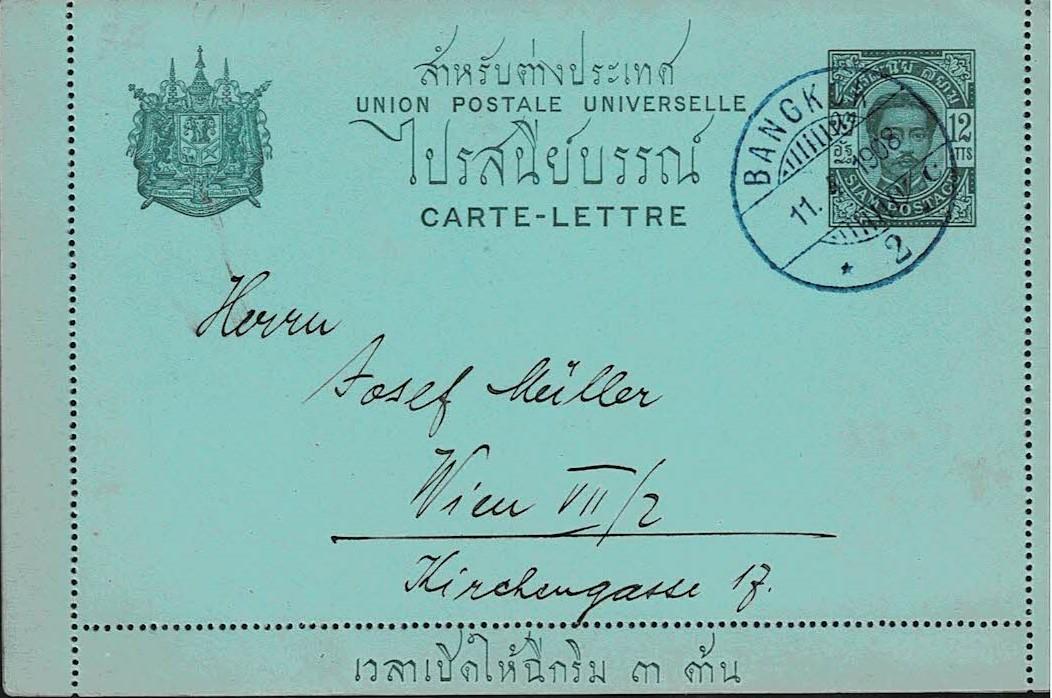 สำหรับต่างประเทศ
UNION POSTALE UNIVERSELLE
ไปรสนีย์บรรณ์
CARTE-LETTRE
12
SIAM POSTAGE
BANGK
11. 1908
2
Herrn
Josef Müller
Wien VII/2
Kirchengasse 17.
เวลาเปิดให้ฉีกริม ๓ ด้าน